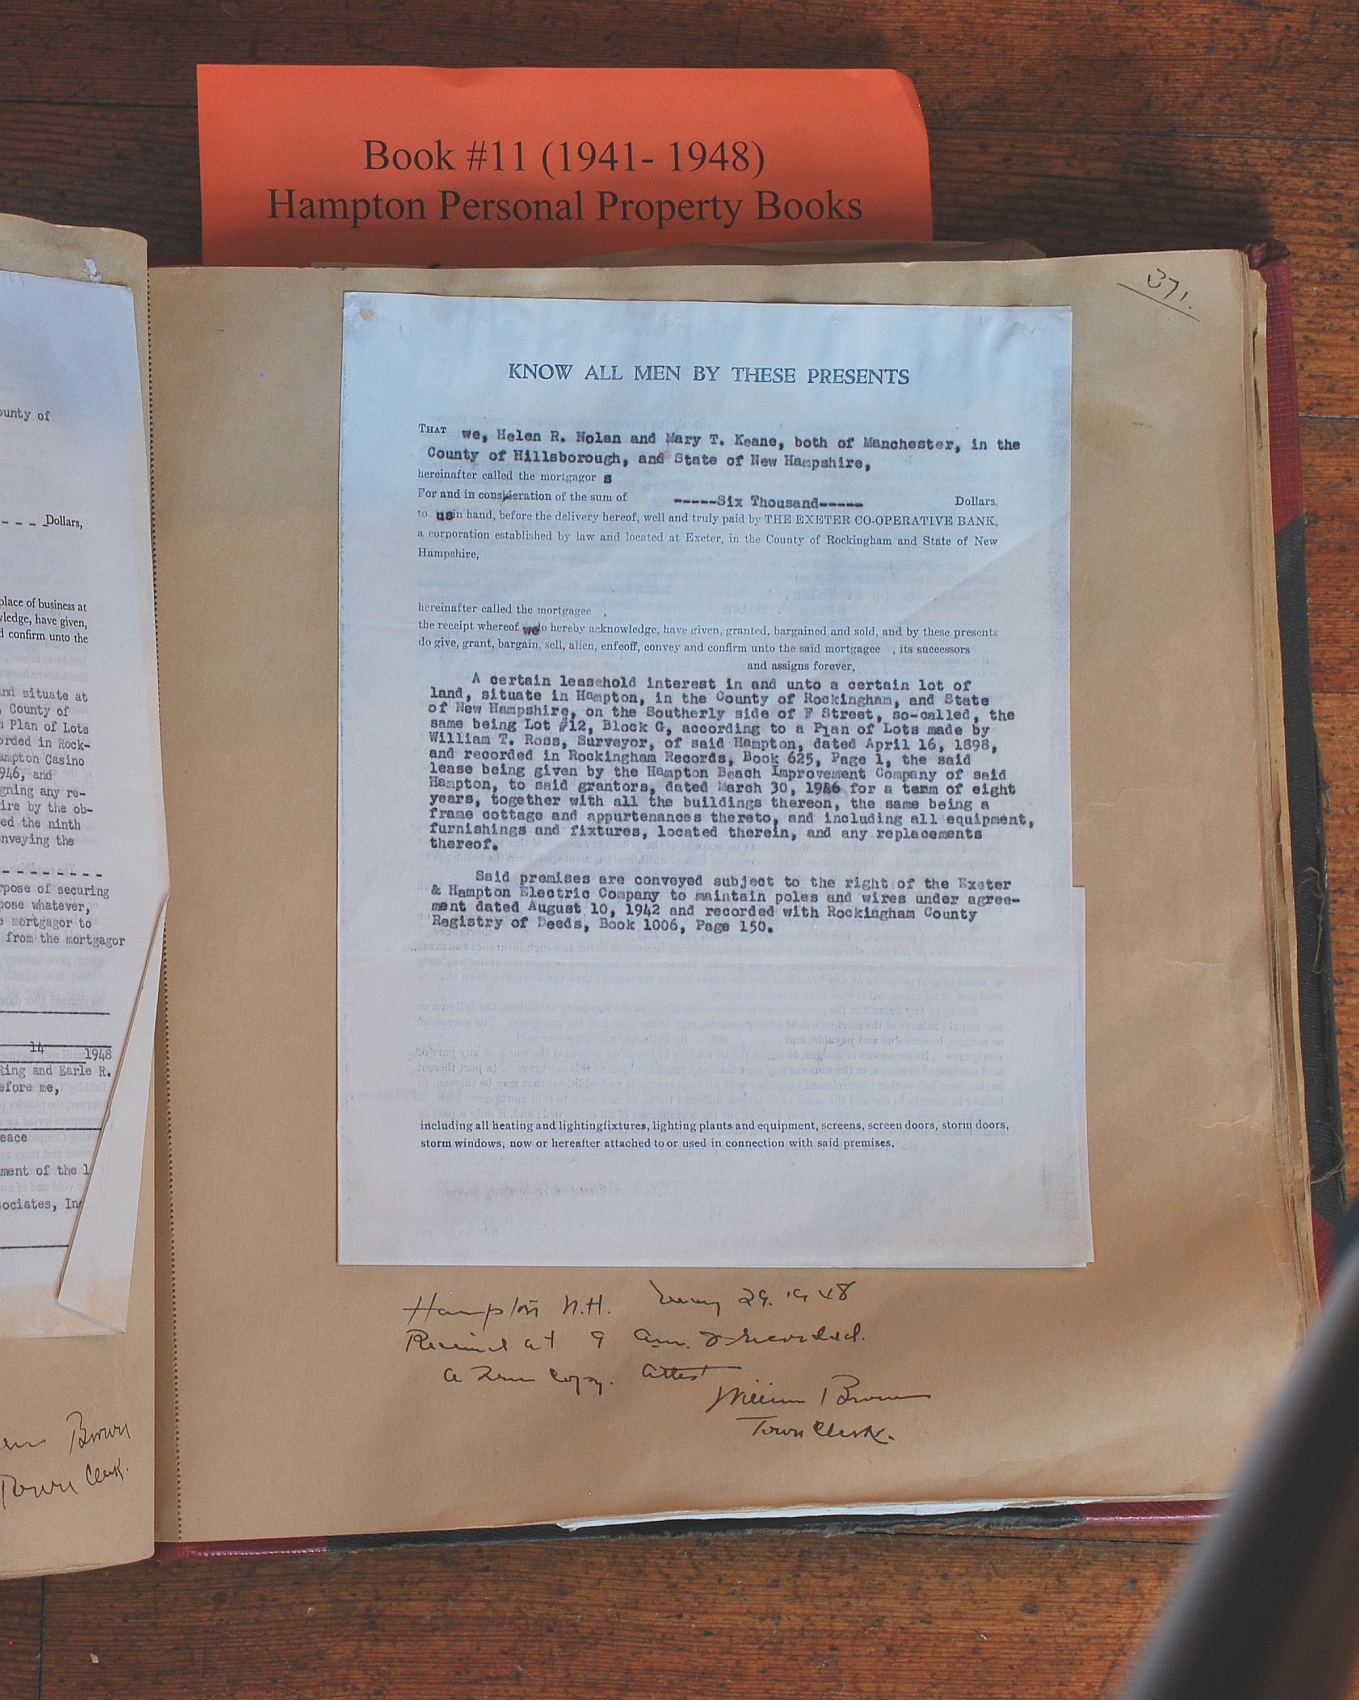 Book #11 (1941- 1948)
Hampton Personal Property Books
371.
ounty of
- - - -Dollars,
place of business at
wledge, have given,
d confirm unto the
and situate at
, County of
n Plan of Lots
orded in Rock-
ampton Casino
946, and
gning any re-
ire by the ob-
ed the ninth
nveying the
- - - - - - - - -
rpose of securing
pose whatever,
e mortgagor to
from the mortgagor
14 1948
Ring and Earle R.
efore me,
eace
ment of the l
ociates, Inc
Brown
Town Clerk.
KNOW ALL MEN BY THESE PRESENTS
THAT we, Helen R. Nolan and Mary T. Keane, both of Manchester, in the
County of Hillsborough, and State of New Hampshire,
hereinafter called the mortgagor s
For and in consideration of the sum of -----Six Thousand----- Dollars.
to us in hand, before the delivery hereof, well and truly paid by THE EXETER CO-OPERATIVE BANK,
a corporation established by law and located at Exeter, in the County of Rockingham and State of New
Hampshire,
hereinafter called the mortgagee ,
the receipt whereof we do hereby acknowledge, have given, granted, bargained and sold, and by these presents
do give, grant, bargain, sell, alien, enfeoff, convey and confirm unto the said mortgagee , its successors
and assigns forever,
A certain leasehold interest in and unto a certain lot of
land, situate in Hampton, in the County of Rockingham, and State
of New Hampshire, on the Southerly side of F Street, so-called, the
same being Lot #12, Block G, according to a Plan of Lots made by
William T. Ross, Surveyor, of said Hampton, dated April 16, 1898,
and recorded in Rockingham Records, Book 625, Page 1, the said
lease being given by the Hampton Beach Improvement Company of said
Hampton, to said grantors, dated March 30, 1946 for a term of eight
years, together with all the buildings thereon, the same being a
frame cottage and appurtenances thereto, and including all equipment,
furnishings and fixtures, located therein, and any replacements
thereof.
Said premises are conveyed subject to the right of the Exeter
& Hampton Electric Company to maintain poles and wires under agree-
ment dated August 10, 1942 and recorded with Rockingham County
Registry of Deeds, Book 1006, Page 150.
including all heating and lightingfixtures, lighting plants and equipment, screens, screen doors, storm doors,
storm windows, now or hereafter attached to or used in connection with said premises.
Hampton N.H. 29. 1948
Received at 9 am. & recorded.
a True Copy. Attest
William Brown
Town Clerk.